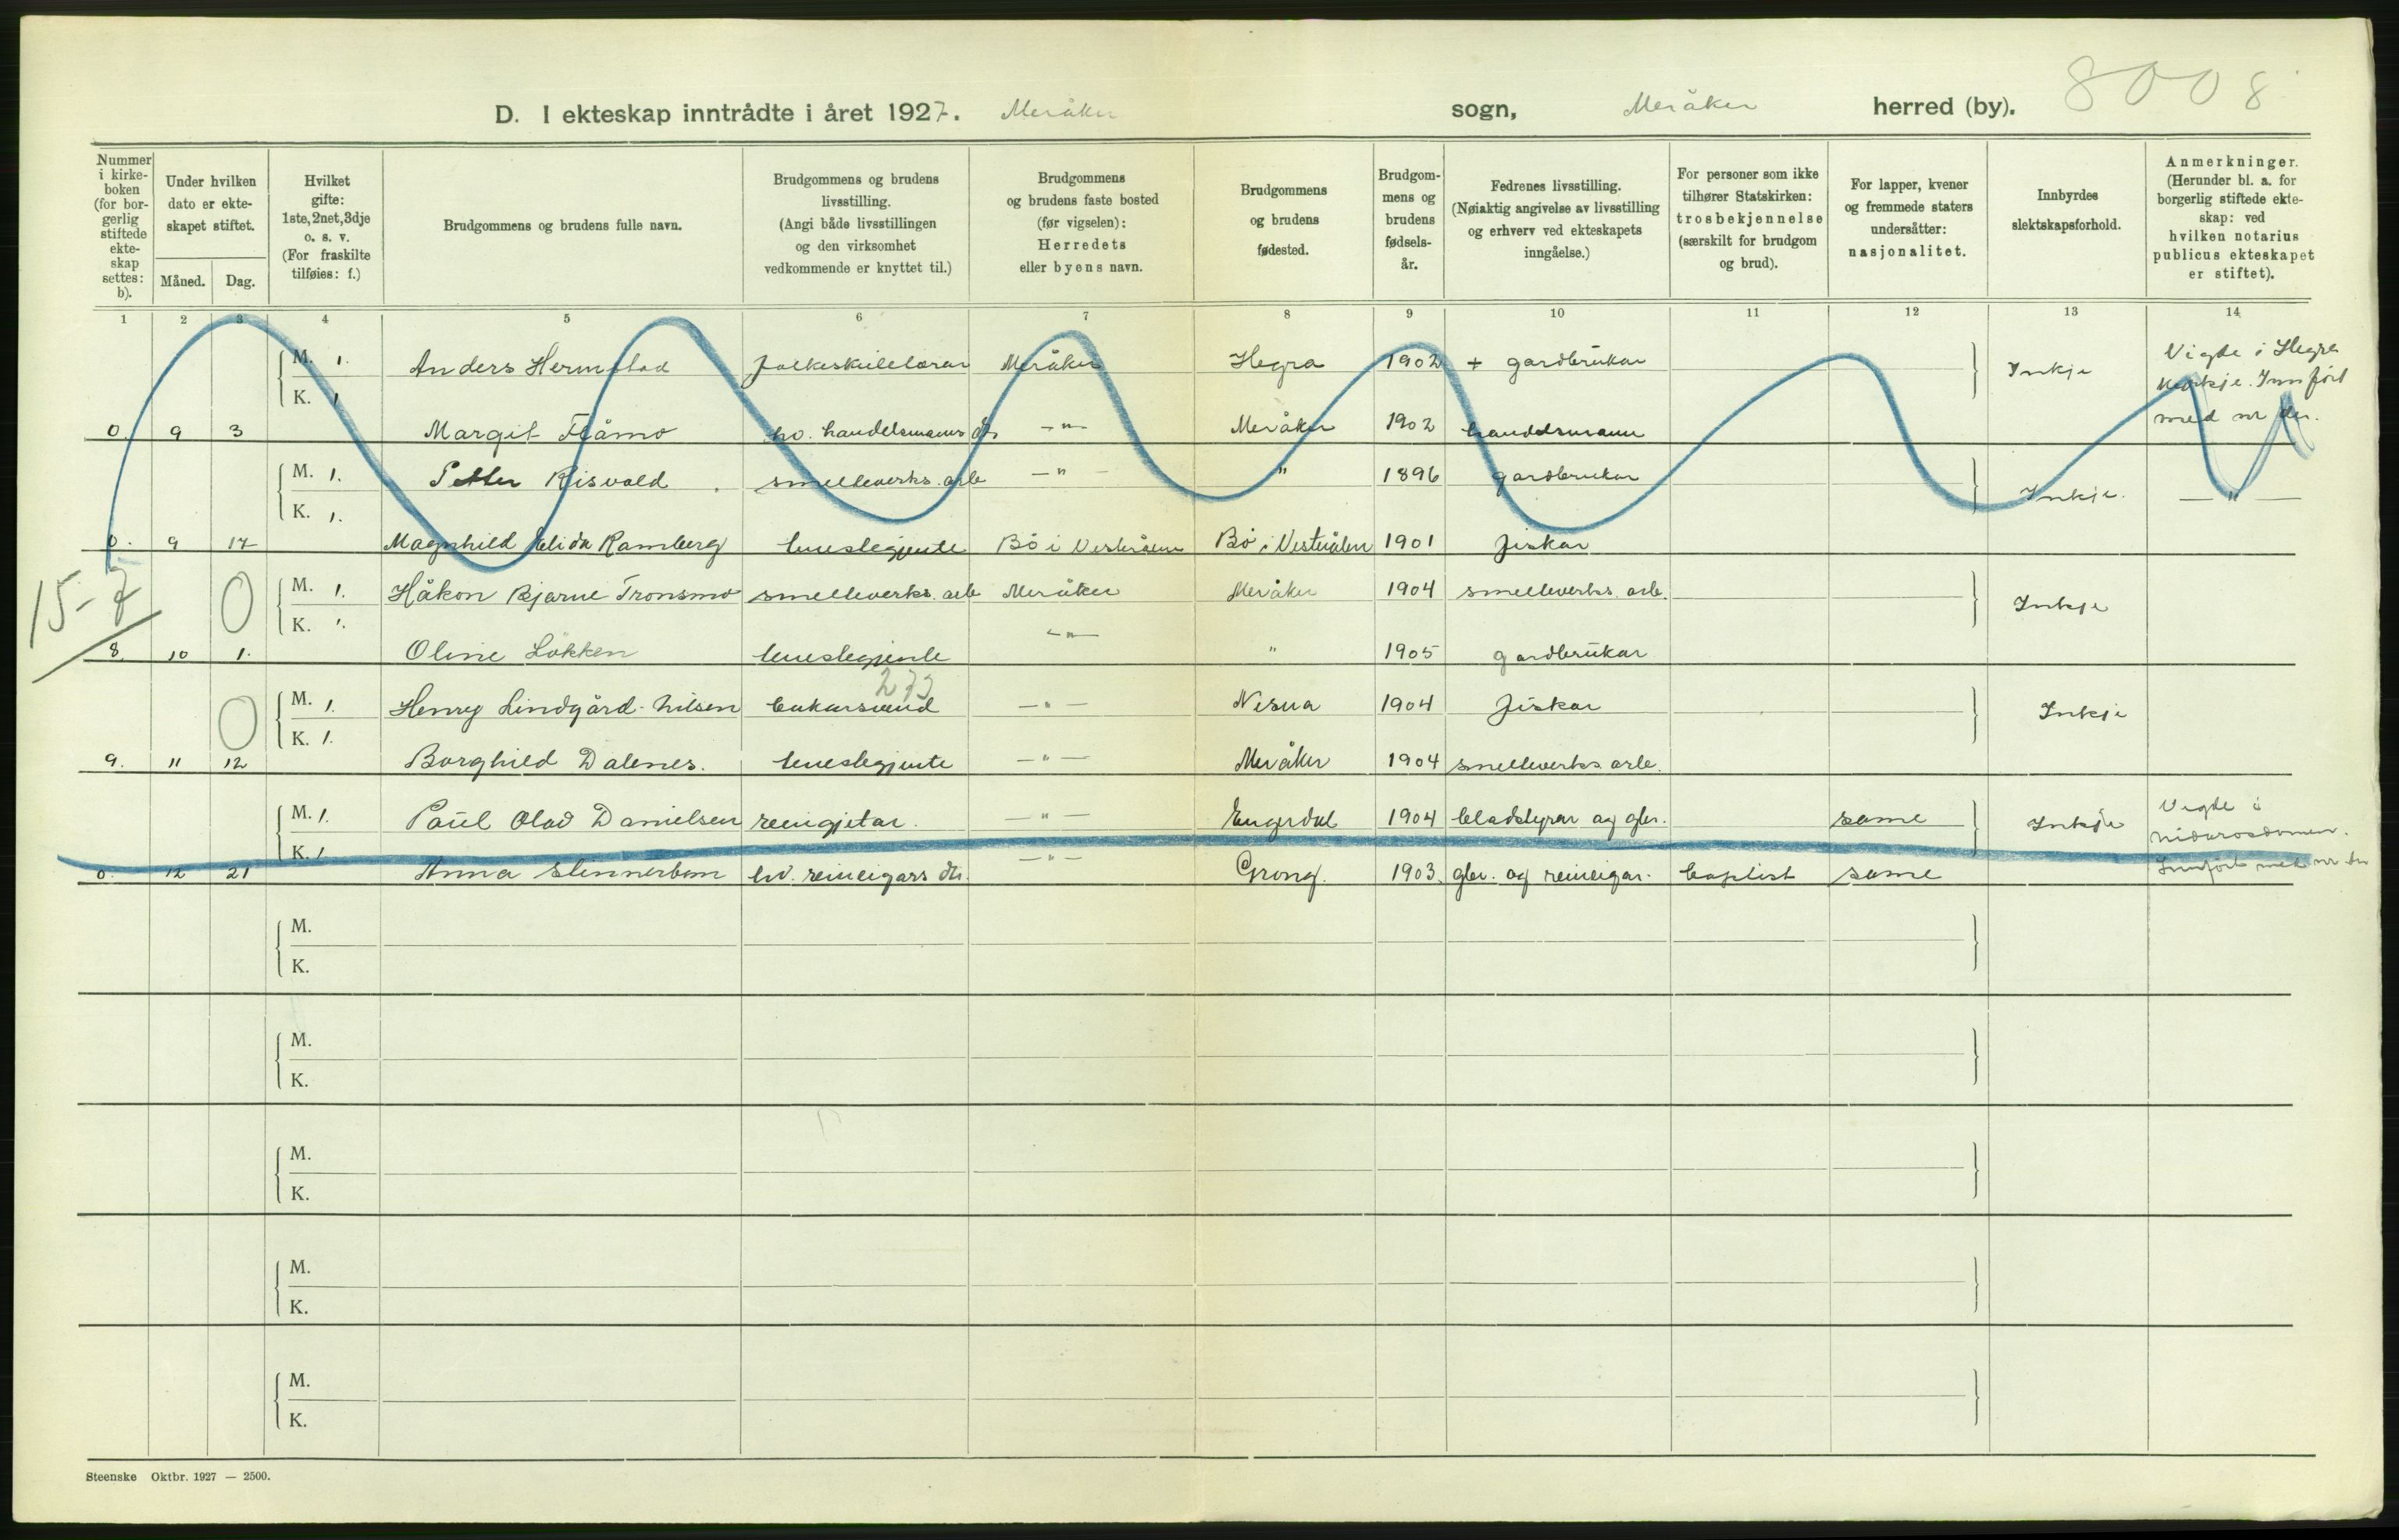 8008
D. I ekteskap inntrådte i året 1927. Meråker sogn, Meråker herred (by).
Nummer i kirke-boken (for bor-gerlig stiftede ekte-skap settes: b).
Under hvilken dato er ekte-skapet stiftet.
Måned. Dag.
Hvilket gifte: 1ste, 2net, 3dje o. s. v. (For fraskilte tilføies: f.)
Brudgommens og brudens fulle navn.
Brudgommens og brudens livsstilling. (Angi både livsstillingen og den virksomhet vedkommende er knyttet til.)
Brudgommens og brudens faste bosted (før vigselen): Herredets eller byens navn.
Brudgommens og brudens fødested.
Brudgom-mens og brudens fødsels-år.
Fedrenes livsstilling. (Nøiaktig angivelse av livsstilling og erhverv ved ekteskapets inngåelse.)
For personer som ikke tilhører Statskirken: trosbekjennelse (særskilt for brudgom og brud).
For lapper, kvener og fremmede staters undersåtter: nasjonalitet.
Innbyrdes slektskapsforhold.
Anmerkninger. (Herunder bl. a. for borgerlig stiftede ekte-skap: ved hvilken notarius publicus ekteskapet er stiftet).
1 2 3 4 5 6 7 8 9 10 11 12 13 14
M. 1. Anders Hermstad folkeskulelærar Meråker Hegra 1902 + gardbrukar Inkje Vigde i Hegra kyrkje. Innfört med nr der.
K. 1
0. 9 3 Margit Flåmo hv. handelsmanns dtr —"— Meråker 1902 handelsmann
M. 1. Petter Risvold smelteverks. arb —"— " 1896 gardbrukar Inkje. —"—
K. 1.
0. 9 17 Magnhild Elida Ramberg tenestegjente Bö i Vesterålen Bö i Vesterålen 1901 fiskar
15-7
0
M. 1. Håkon Bjarne Tronsmo smelteverks. arb Meråker Meråker 1904 smelteverks. arb. Inkje
K. 1.
8. 10 1. Oline Lökken tenestegjente —"— " 1905 gardbrukar
273
0
M. 1. Henry Lindgård-Nilsen bakarsvend —"— Nesna 1904 fiskar Inkje
K. 1.
9. 11 12 Borghild Dalenes. tenestegjente —"— Meråker 1904 smelteverks arb.
M. 1. Paul Olav Danielsen reingjetar. —"— Engerdal 1904 bladstyrar og gbr. same Inkje Vigde i Nidarosdomen. Innfört med nr der
K. 1
0. 12 21 Anna Stinnerbom hv. reineigars dtr. —"— Grong. 1903. gbr. og reineigar. baptist same
M.
K.
M.
K.
M.
K.
M.
K.
M.
K.
Steenske Oktbr. 1927 — 2500.